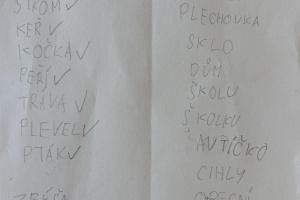 STROM✓
KEŘ✓
KOČKA✓
PEŘÍ✓
TRÁVA✓
PLEVEL✓
PTÁK✓
PLECHOVKA
SKLO
DŮM
ŠKOLU
ŠKOLKU
AUTÍČKO
CIHLY